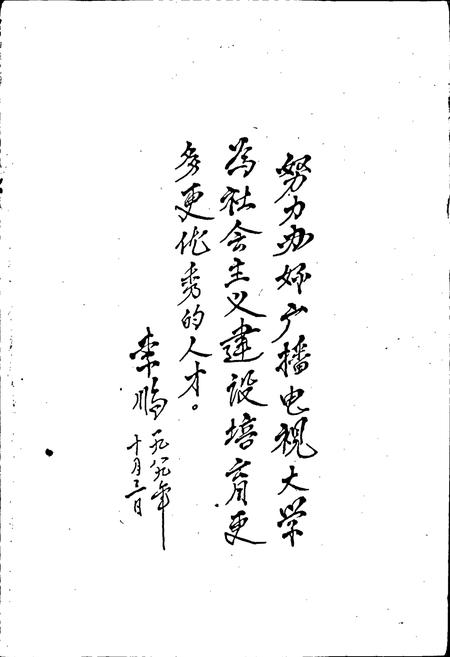 努力办好广播电视大学
为社会主义建设培育更
多更优秀的人才。
李鹏 一九八九年
十月三日